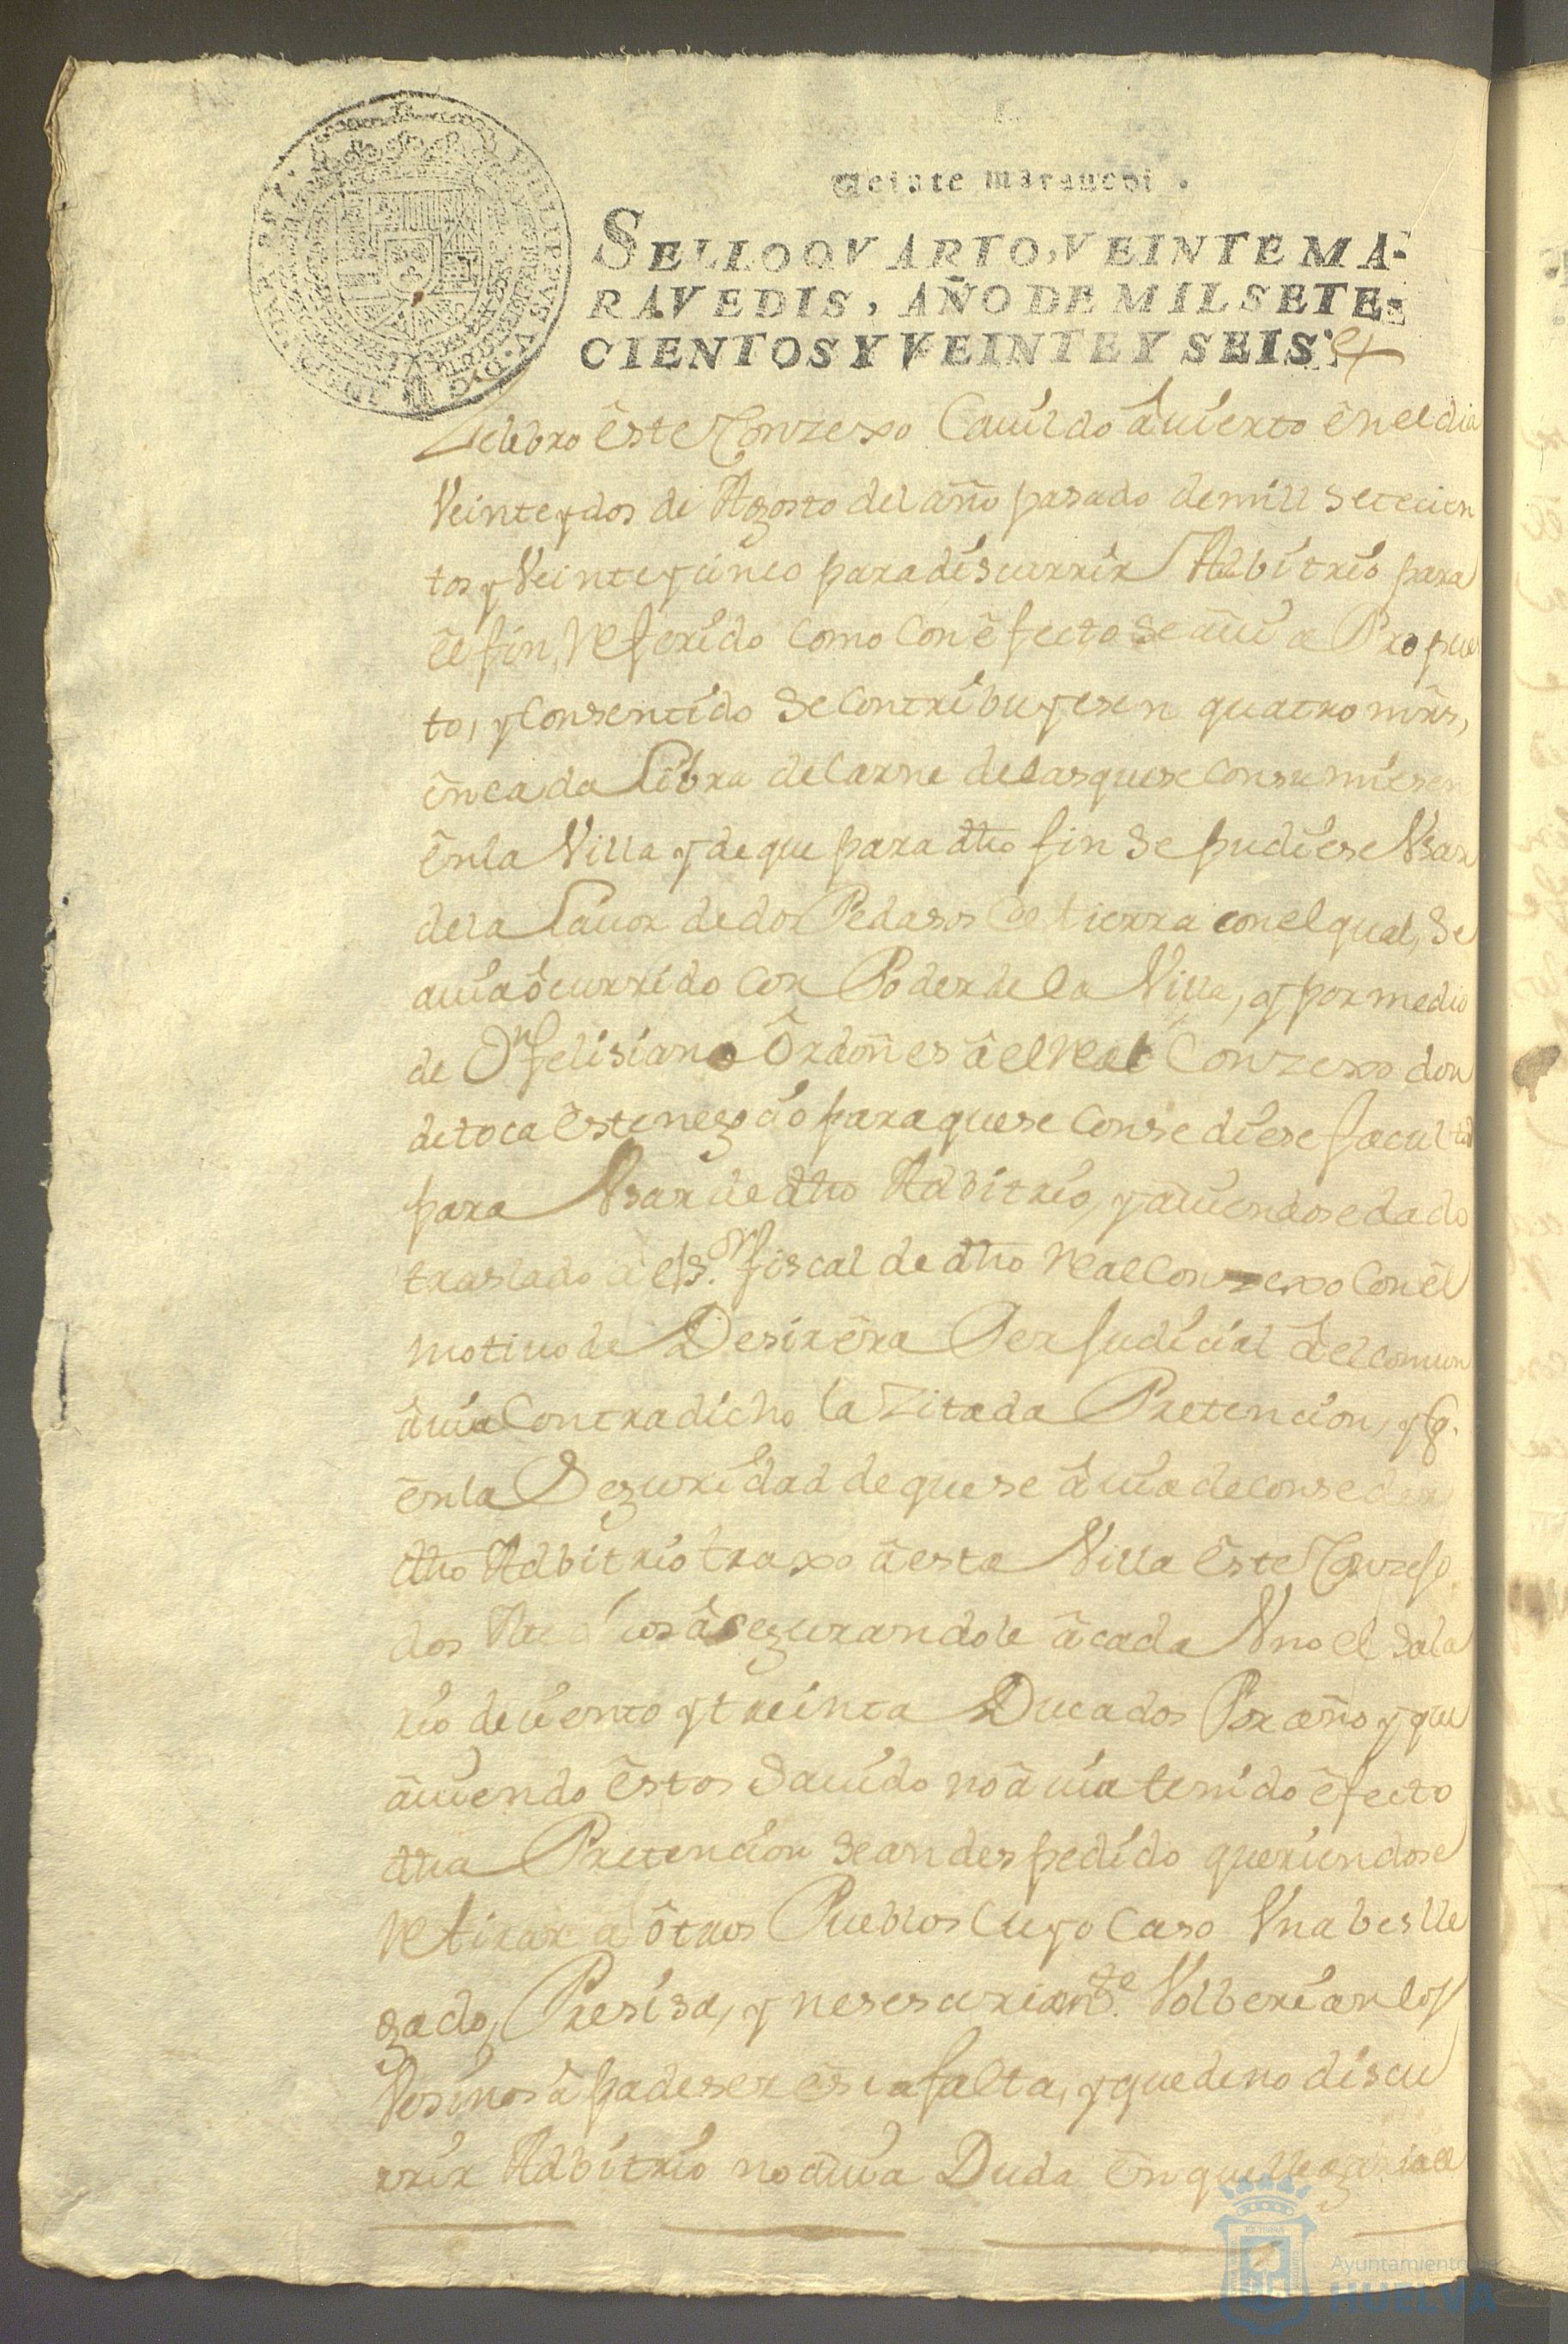 Veinte marauedi .
SELLO QVARTO, VEINTE MA-
RAVEDIS, AÑO DE MIL SETE-
CIENTOS Y VEINTE Y SEIS
Zelebro êste Conzexo Cauildo âuierto ên el dia
Veinte y dos de Agosto del año pasado de mill setecien
tos y Veinte y cinco para discurrir Adbitrio para
êl fin, referido como con êfecto se âuia Propues
to, y Consentido se contribuyesen quatro mrs,
ên cada Libra de Carne de las que se consumiesen
ên la Villa y de que para dho fin se pudiese Vsar
de la Lauor de dos Pedasos de tierra con el qual, se
auia ôcurrido con Poder de la Villa, y por medio
de Dn felisiano Ôrdoñes â el Real Conzexo don
de toca êste negocio para que se consediese facultd
para Vsar de dho Adbitrio, y âuiendose dado
traslado â el Sor fiscal de dho Real Conzexo con êl
motiuo de Desir êra Perjudicial â el comun
âuia Contradicho la Zitada Pretencion, y q.
ên la Seguridad de que se âuia de conseder
dho Adbitrio traxo â esta Villa êste Conzejo
dos Medicos âsegurandole â cada Vno el sala
rio de ciento y treinta Ducados Por año y que
âuiendo êstos sauido no âuia tenido êfecto
dha Pretencion se an despedido queriendose
Retirar a ôtros Pueblos cuyo Caso Vna bes lle
gado, Presisa, y nesesariamte. Volberian los
Vesinos â padeser êsta falta, y que de no discu
rrir Adbitrio no âuia Duda ên que llegaria el
Ayuntamiento de
HUELVA